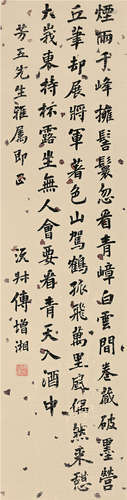 煙雨千峰擁髻鬟忽看青嶂白雲間卷藏破墨營
丘筆却展將軍著色山駕鶴孤飛萬里風偶然來憩
大峩東持杯露坐無人會要看青天入酒中
芳五先生雅屬即正
沅叔傅增湘